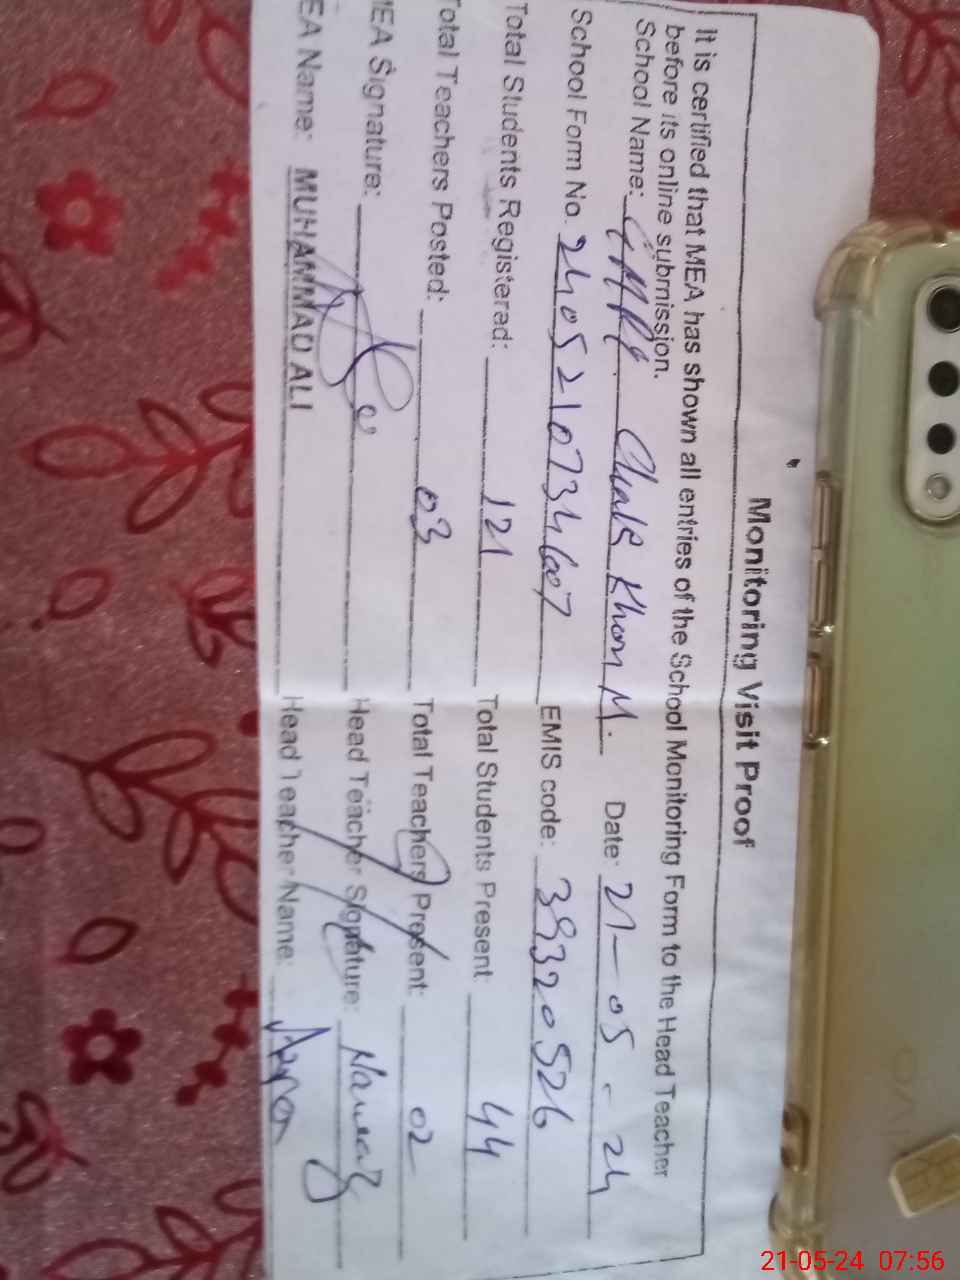 Monitoring Visit Proof
It is certified that MEA has shown all entries of the School Monitoring Form to the Head Teacher
before its online submission.
School Name: GMPS Chak Khan M. Date: 21-05-24
School Form No. 2405210734607 EMIS code: 39320526
Total Students Registered: 121 Total Students Present: 44
Total Teachers Posted: 03 Total Teachers Present: 02
MEA Signature: Head Teacher Signature:
EA Name: MUHAMMAD ALI Head Teacher Name:
VIVO
21-05-24 07:56